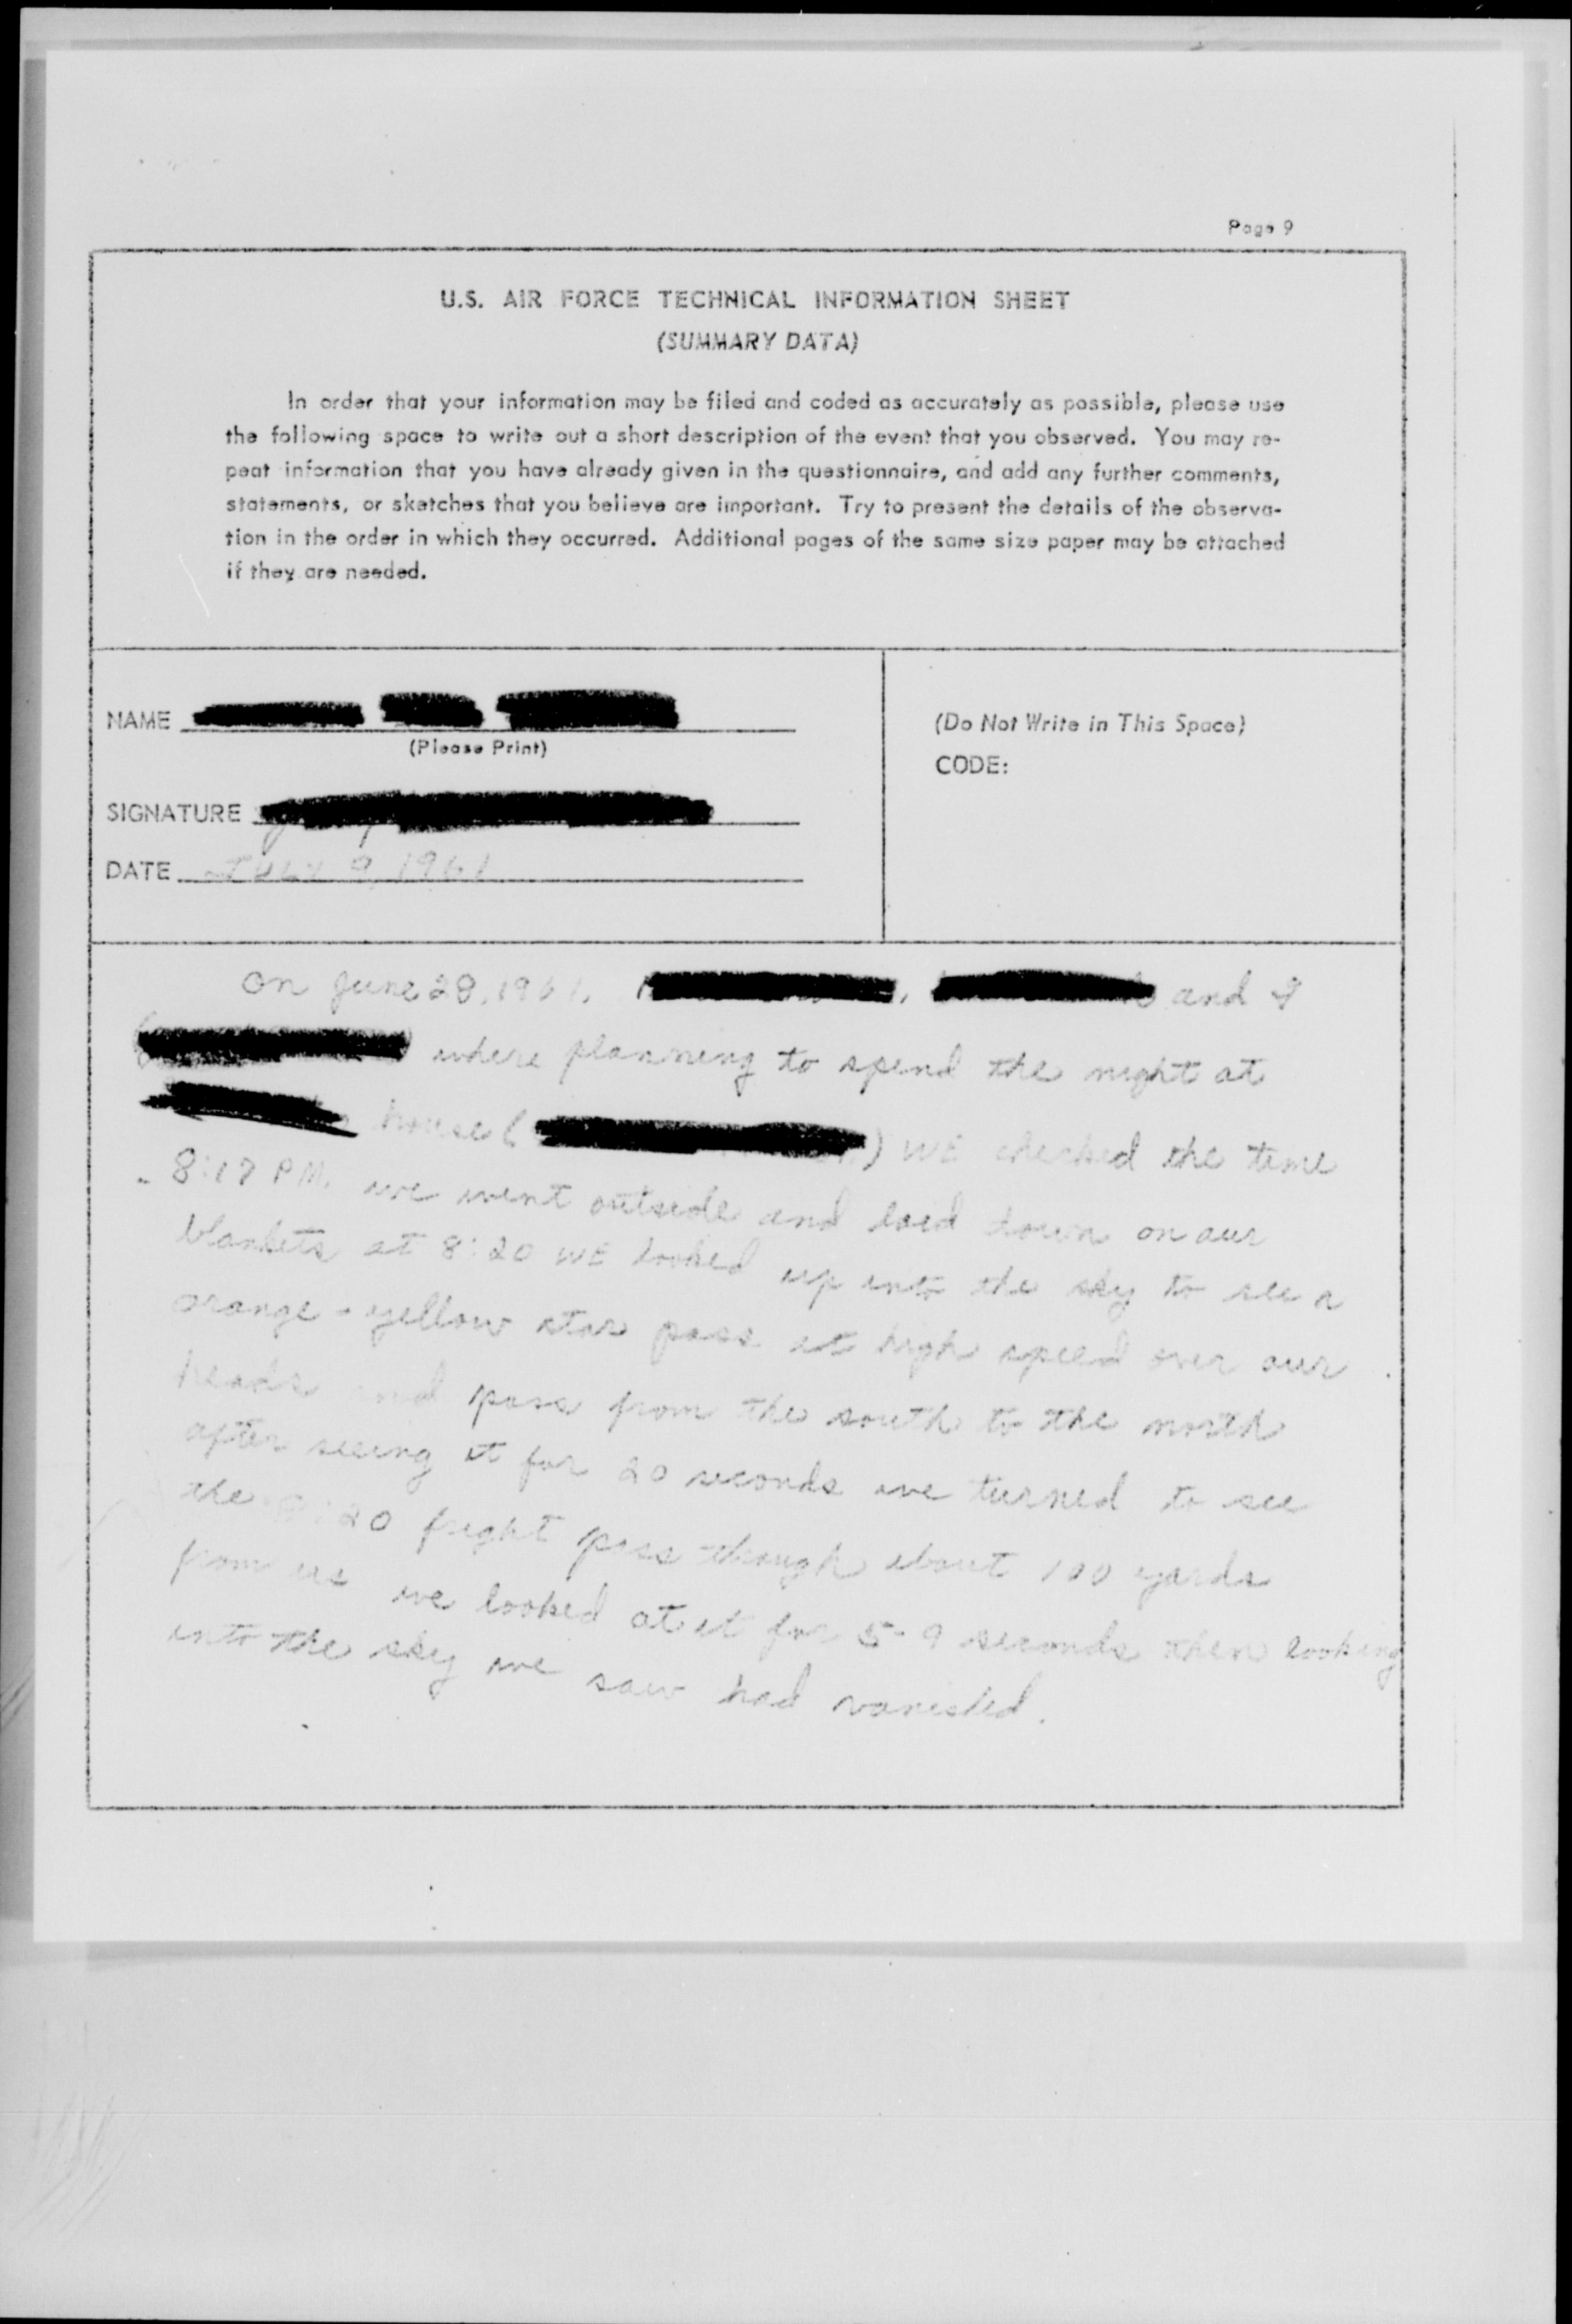 Page 9
U.S. AIR FORCE TECHNICAL INFORMATION SHEET
(SUMMARY DATA)
In order that your information may be filed and coded as accurately as possible, please use
the following space to write out a short description of the event that you observed. You may re-
peat information that you have already given in the questionnaire, and add any further comments,
statements, or sketches that you believe are important. Try to present the details of the observa-
tion in the order in which they occurred. Additional pages of the same size paper may be attached
if they are needed.
NAME
(Please Print)
SIGNATURE
DATE JULY 9, 1961
(Do Not Write in This Space)
CODE:
on June 28, 1961, , and I
( ) where planning to spend the night at
house ( ) WE checked the time
8:18 PM. we went outside and laid down on our
blankets at 8:20 WE looked up into the sky to see a
orange-yellow star pass at high speed over our
heads and pass from the south to the north
after seeing it for 20 seconds we turned to see
the :20 fright pass though about 100 yards
from us we looked at it for 5-9 seconds then looking
into the sky we saw had vanished.